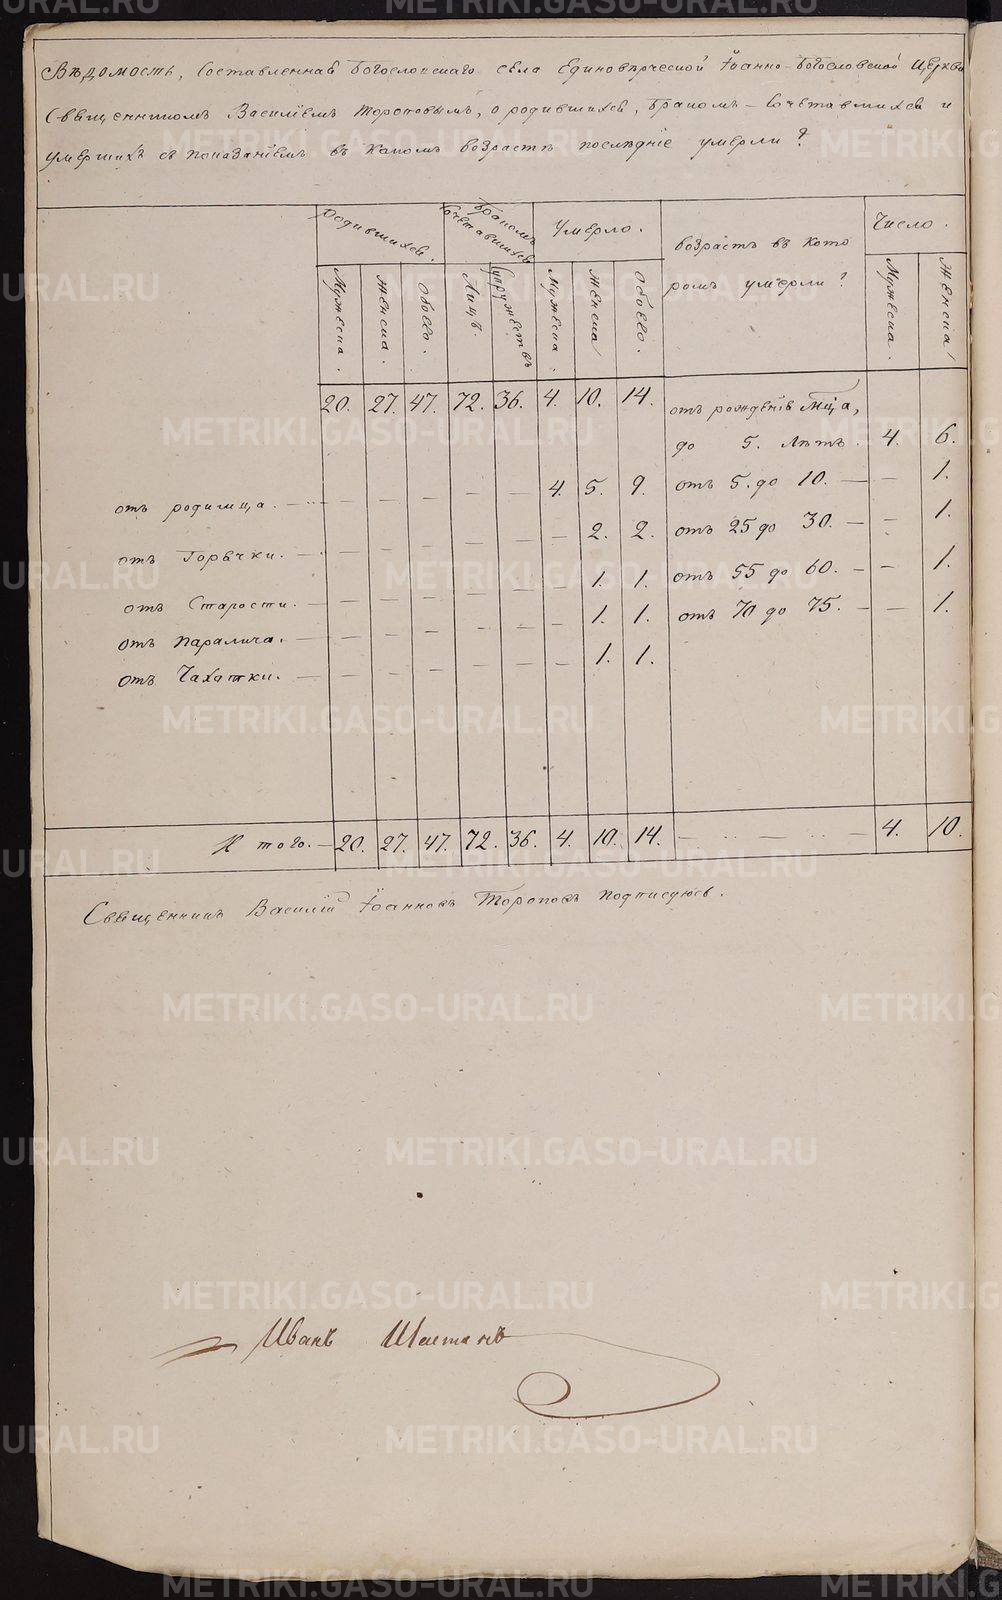 Вѣдомость, Составленная Богословскаго села Единовѣрческой Іоанно-Богословской Церкви
Священникомъ Василіемъ Тороповымъ, о родившихся, Бракомъ-Сочетавшихся и
умершихъ съ показаніемъ въ какомъ возрастѣ послѣдніе умерли?
Родившихся. Бракомъ Сочетавшихся Умерло. возрастъ въ кото Число.
ромъ умерли?
Мужеска. Женска. Обоего. Лицъ. Супружествъ Мужеска. Женска Обоего. Мужеска. Женска
20. 27. 47. 72. 36. 4. 10. 14. отъ рожденія
до 5. лѣтъ. 4. 6.
отъ родимца. 4. 5. 9. отъ 5. до 10. 1.
отъ Горячки. 2. 2. отъ 25 до 30. 1.
отъ Старости. 1. 1. отъ 55 до 60. 1.
отъ Паралича. 1. 1. отъ 70 до 75. 1.
отъ Чахатки. 1. 1.
Итого. 20. 27. 47. 72. 36. 4. 10. 14. 4. 10.
Священникъ Василій Іоанновъ Тороповъ подписуюсь.
Иванъ
METRIKI.GASO-URAL.RU